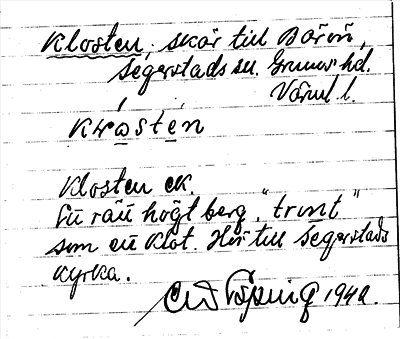 Klosten, skär till Bärön,
Segerstads sn. Grums hd.
Värml. l.
Klosten
Klosten ek.
En rätt högt berg, "trint"
som ett klot. Hör till Segerstads
kyrka.
1940.